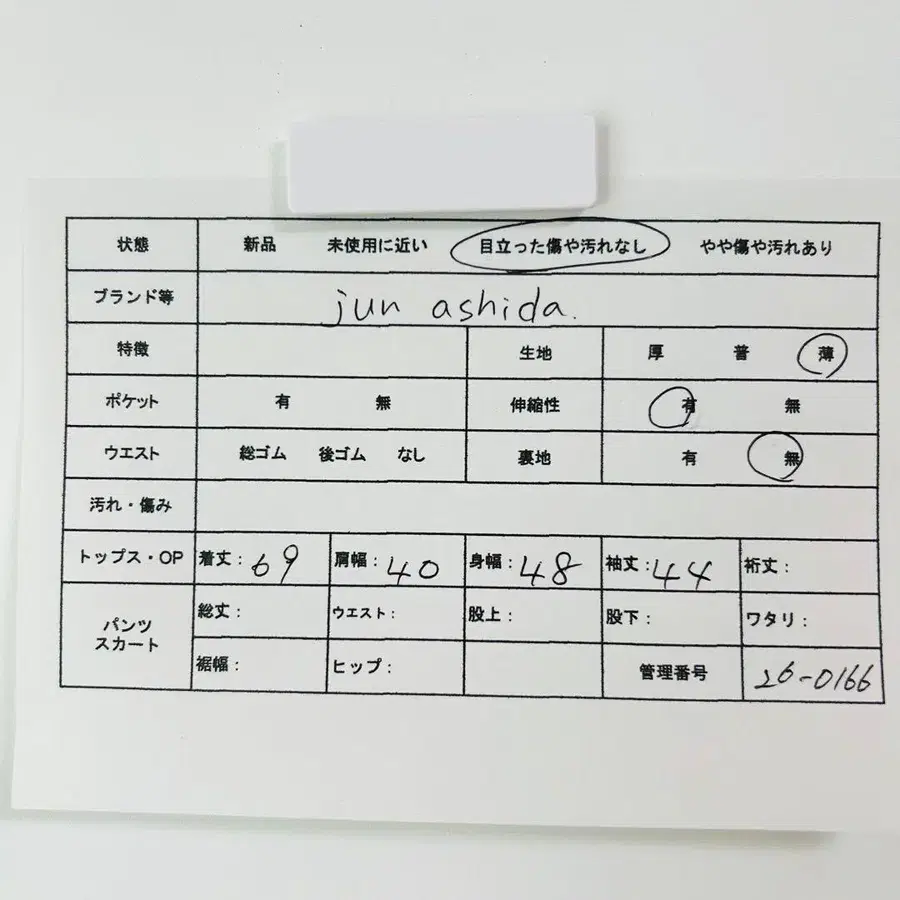 状態 新品 未使用に近い 目立った傷や汚れなし やや傷や汚れあり
ブランド等 jun ashida.
特徴 生地 厚 普 薄
ポケット 有 無 伸縮性 有 無
ウエスト 総ゴム 後ゴム なし 裏地 有 無
汚れ・傷み
トップス・OP 着丈: 69 肩幅: 40 身幅: 48 袖丈: 44 裄丈:
パンツ
スカート
総丈: ウエスト: 股上: 股下: ワタリ:
裾幅: ヒップ: 管理番号 26-0166